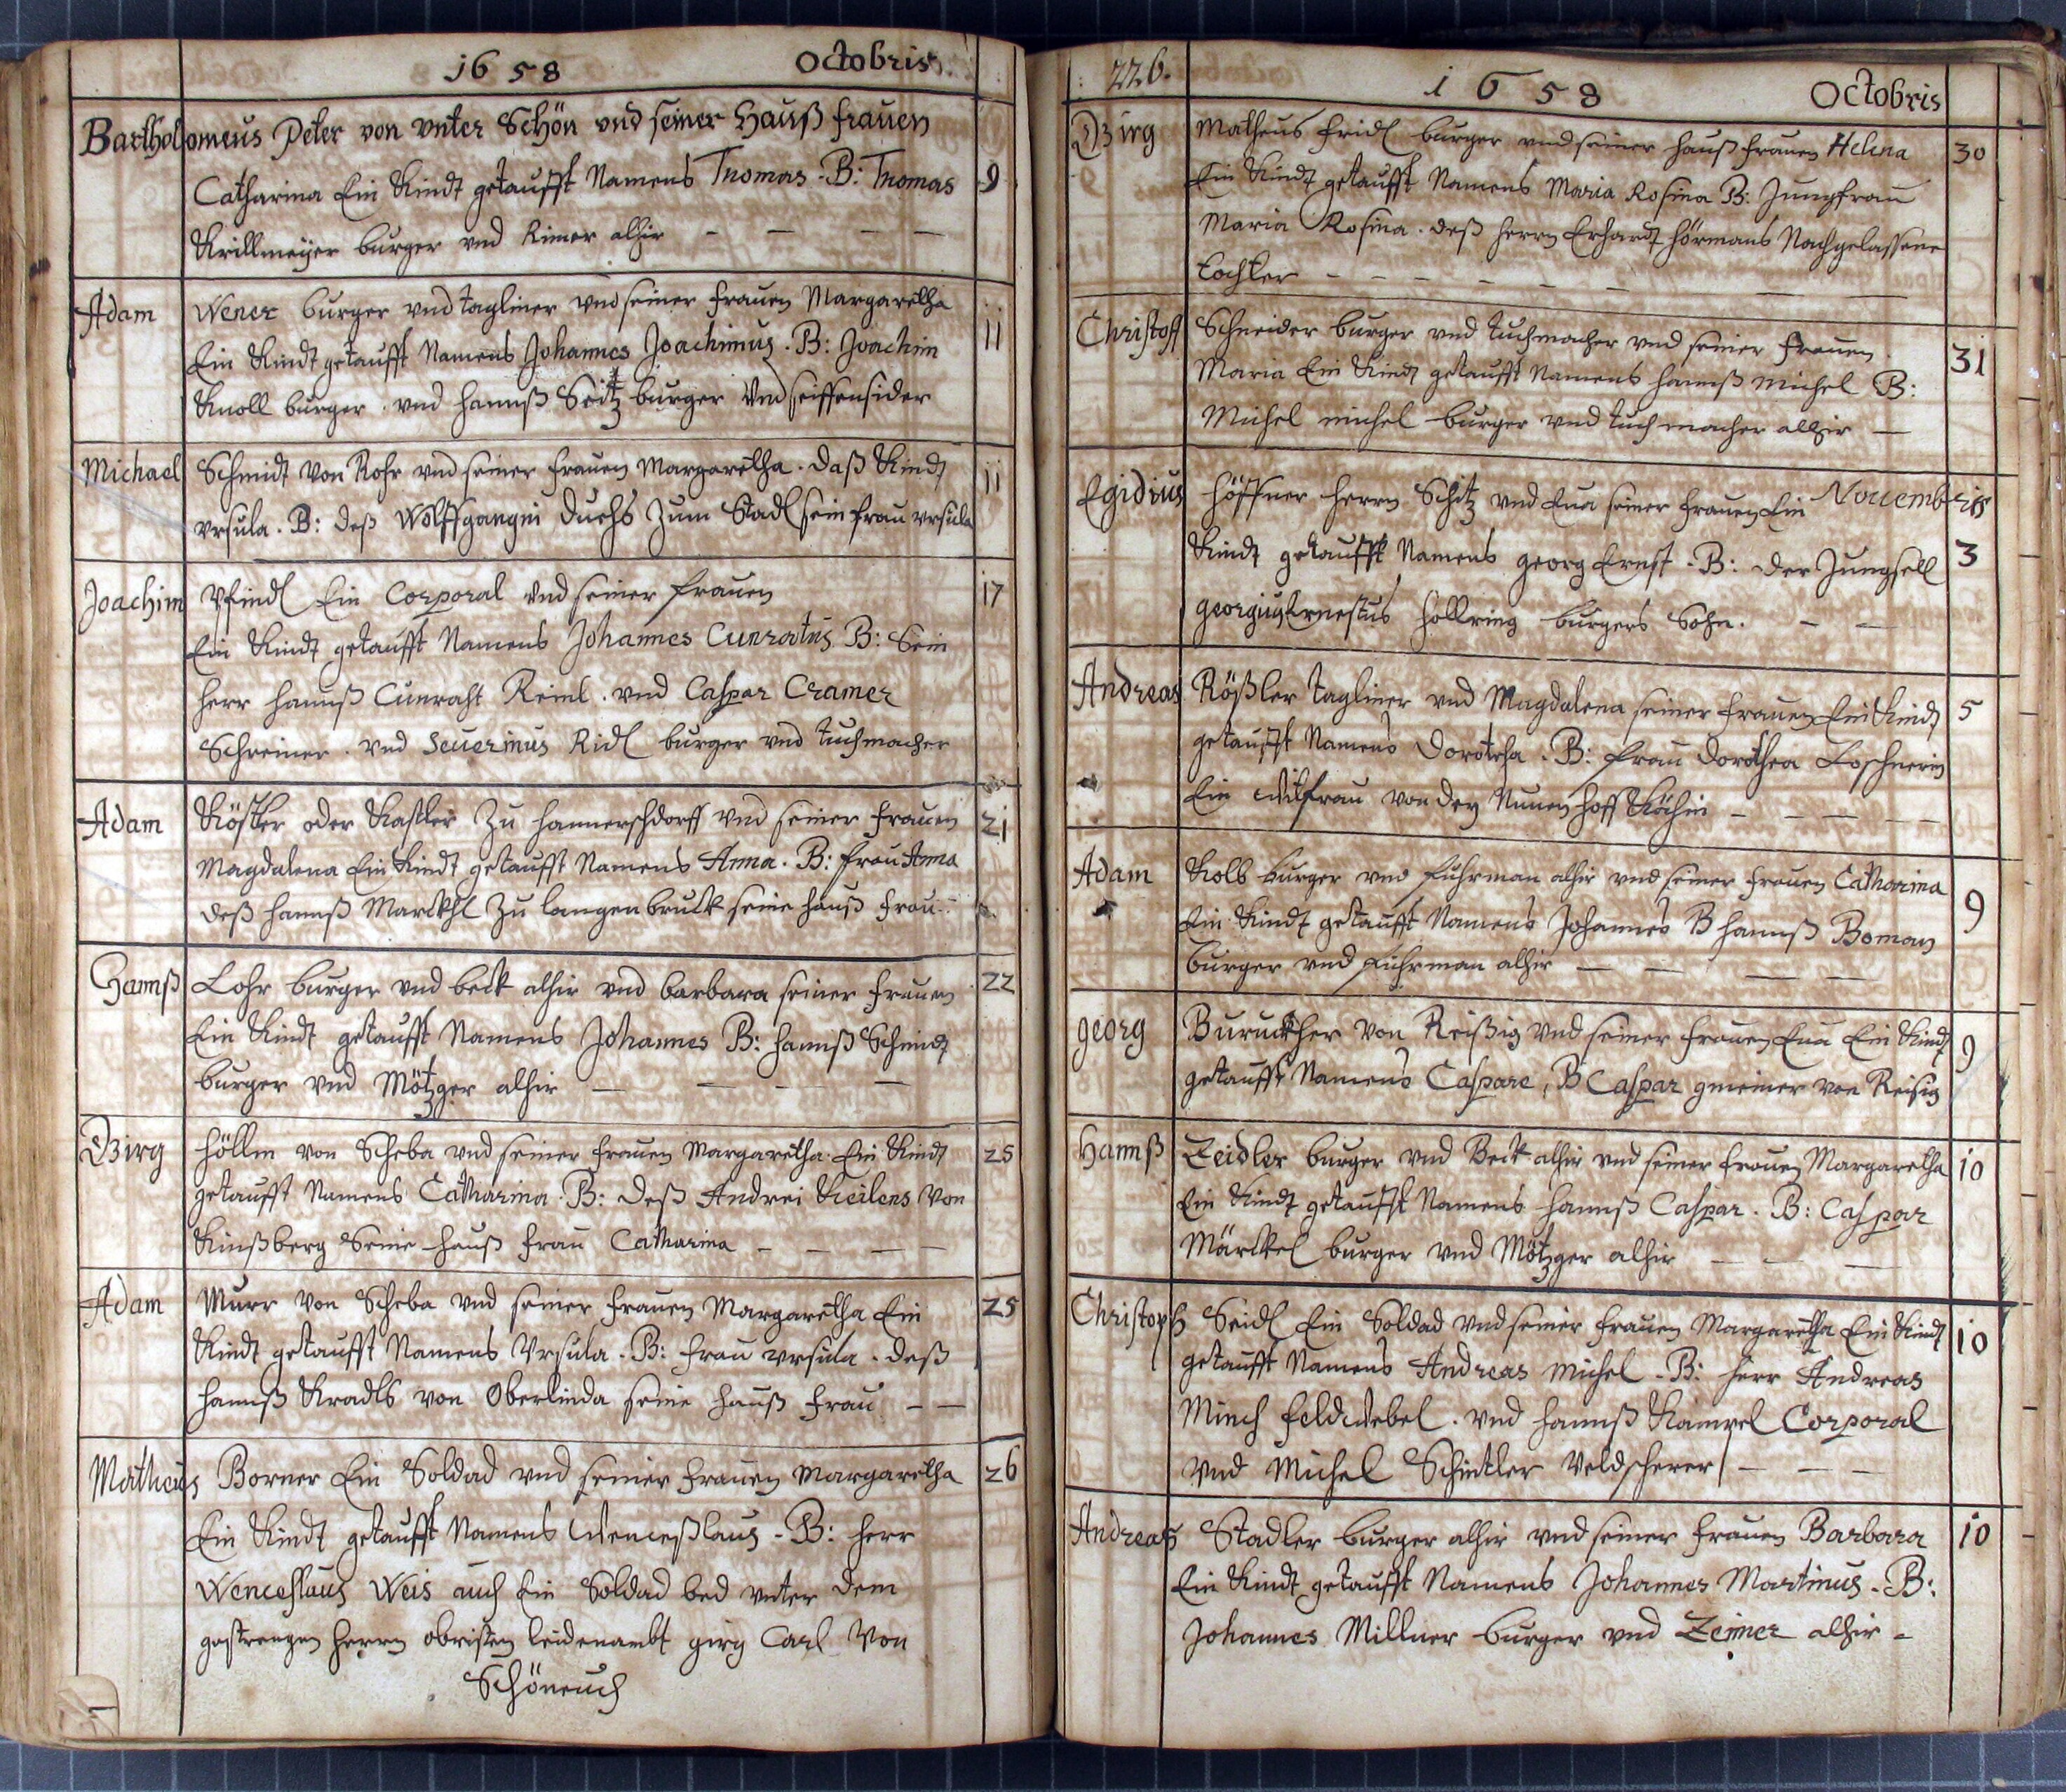 1658 Octobris
Bartholomeus Peter von vnter Schön vnd seiner Hauß frauen
Catharina Ein Kindt getaufft Namens Thomas. B: Thomas 9
Krillmeÿer burger vnd Rimer alhir
Adam Wener burger vnd tagliner vnd seiner frauen Margaretha
Ein Kindt getaufft Namens Johannes Joachimus. B: Joachim 11
Knoll burger. vnd hannß Seitz burger Vnd seiffensider
Michael Schmidt von Rohr vnd seiner frauen Margaretha. daß Kindt 11
vrsula. B: deß Wolffgangni Duchs zum Stadl sein frau vrsula
Joachim Pfindl Ein Corporal vnd seiner frauen 17
Ein Kindt getaufft Namens Johannes Cunratus B: Sein
herr hannß Cunraht Reinl. vnd Caspar Cramer
Schreiner. vnd Seuerinus Ridl burger vnd tuchmacher
Adam Köstler oder Kastler zu hannerschdorff vnd seiner frauen 21
Magdalena Ein Kindt getaufft Namens Anna. B: frau Anna
deß hannß Marckhl zu langenbruck seine hauß frau
Hannß Lohr burger vnd beck alhir vnd barbara seiner frauen 22
Ein Kindt getaufft Namens Johannes B: hannß Schmidt
burger vnd Mötzger alhir
Girg Höllm von Scheba vnd seiner frauen Margaretha Ein Kindt 25
getaufft Namens Catharina. B: deß Andrei Keilens von
Kinßberg Seine hauß frau Catharina
Adam Murr von Scheba vnd seiner frauen Margaretha Ein 25
Kindt getaufft Namens Vrsula. B: frau vrsula. deß
hannß Kradls von Oberlinda seine hauß frau
Matheus Borner Ein Soldad vnd seiner frauen Margaretha 26
Ein Kindt getaufft Namens Wenceßlaus. B: herr
Wenceslaus Weis auch Ein Soldad bed vnter dem
gestrengen herrn obristen leidenambt girg Carl von
Schöneuch
226. 1658 Octobris
Girg Matheus fridl burger vnd seiner hauß frauen Helena 30
Ein Kindt getaufft Namens Maria Rosina B: Jungfrau
Maria Rosina. deß herrn Erhardt hörmans Nachgelassene
tochter
Christoff Schneider burger vnd tuchmacher vnd seiner frauen
Maria Ein Kindt getaufft Namens hannß Michel B: 31
Michel michel burger vnd tuchmacher alhir
Egidius höffner herrn Schitz vnd Eua seiner frauen Ein Nouembris
Kindt getaufft Namens georg Ernst. B: der Jungsell 3
georgius Ernestus hollring burgers Sohn.
Andreas Rößler tagliner vnd Magdalena seiner frauen Ein Kindt 5
getaufft Namens Doroteha. B: frau Dorothea Loschnerin
Ein witfrau von der Nunenhoff Köchin
Adam Kolb burger vnd fuhrman alhir vnd seiner frauen Catharina
Ein Kindt getaufft Namens Johannes B hannß Boman 9
burger vnd fuhrman alhir
georg Buruckher von Reißig vnd seiner frauen Eua Ein Kindt 9
getaufft Namens Caspare, B Caspar gmeiner von Reisig
Hannß Zeidler burger vnd Beck alhir vnd seiner frauen Margaretha 10
Ein Kindt getaufft Namens hannß Caspar. B: Caspar
Märckel burger vnd Mötzger alhir
Christoph Seidl Ein Soldad vnd seiner frauen Margaretha Ein Kindt 10
getaufft Namens Andreas Michel. B: herr Andreas
Minch feldwebel. vnd hannß Kämpel Corporal
vnd Michel Schintler Veldscherer
Andreas Stadler burger alhir vnd seiner frauen Barbara 10
Ein Kindt getaufft Namens Johannes Martinus. B:
Johannes Millner burger vnd Zeimer alhir